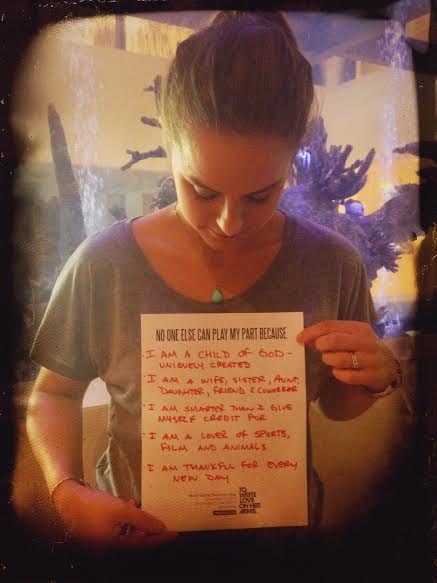 NO ONE ELSE CAN PLAY MY PART BECAUSE
I AM A CHILD OF GOD -
UNIQUELY CREATED
I AM A WIFE, SISTER, AUNT,
DAUGHTER, FRIEND & COWORKER
I AM SMARTER THAN I GIVE
MYSELF CREDIT FOR
I AM A LOVER OF SPORTS,
FILM AND ANIMALS
I AM THANKFUL FOR EVERY
NEW DAY
TO
WRITE
LOVE
ON HER
ARMS.